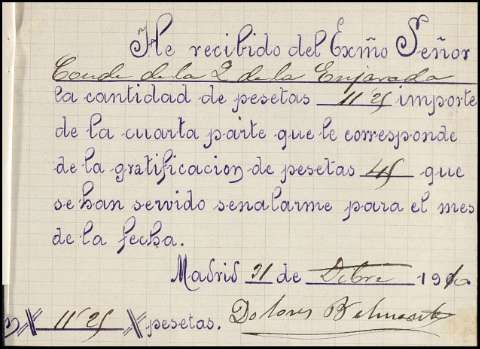 He recibido del Exmõ Señor
Conde de la Q de la Enjarada
la cantidad de pesetas 11 25 importe
de la cuarta parte que le corresponde
de la gratificacion de pesetas 45 que
se han servido senalarme para el mes
de la fecha.
Madrid 31 de Dbre 1910
X 11 25 X pesetas. Dolores Belmonte